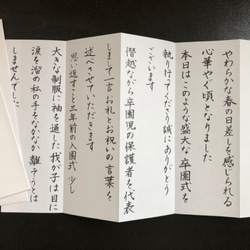 やわらかな春の日差しを感じられる
心華やぐ頃となりました
本日はこのような盛大な卒園式を
執り行ってくださり誠にありがとう
ございます
僭越ながら卒園児の保護者を代表
しまして一言お礼とお祝いの言葉を
述べさせていただきます
思い返すこと三年前の入園式少し
大きな制服に袖を通した我が子は目に
涙を溜め私の手をなかなか離そうとは
しませんでした